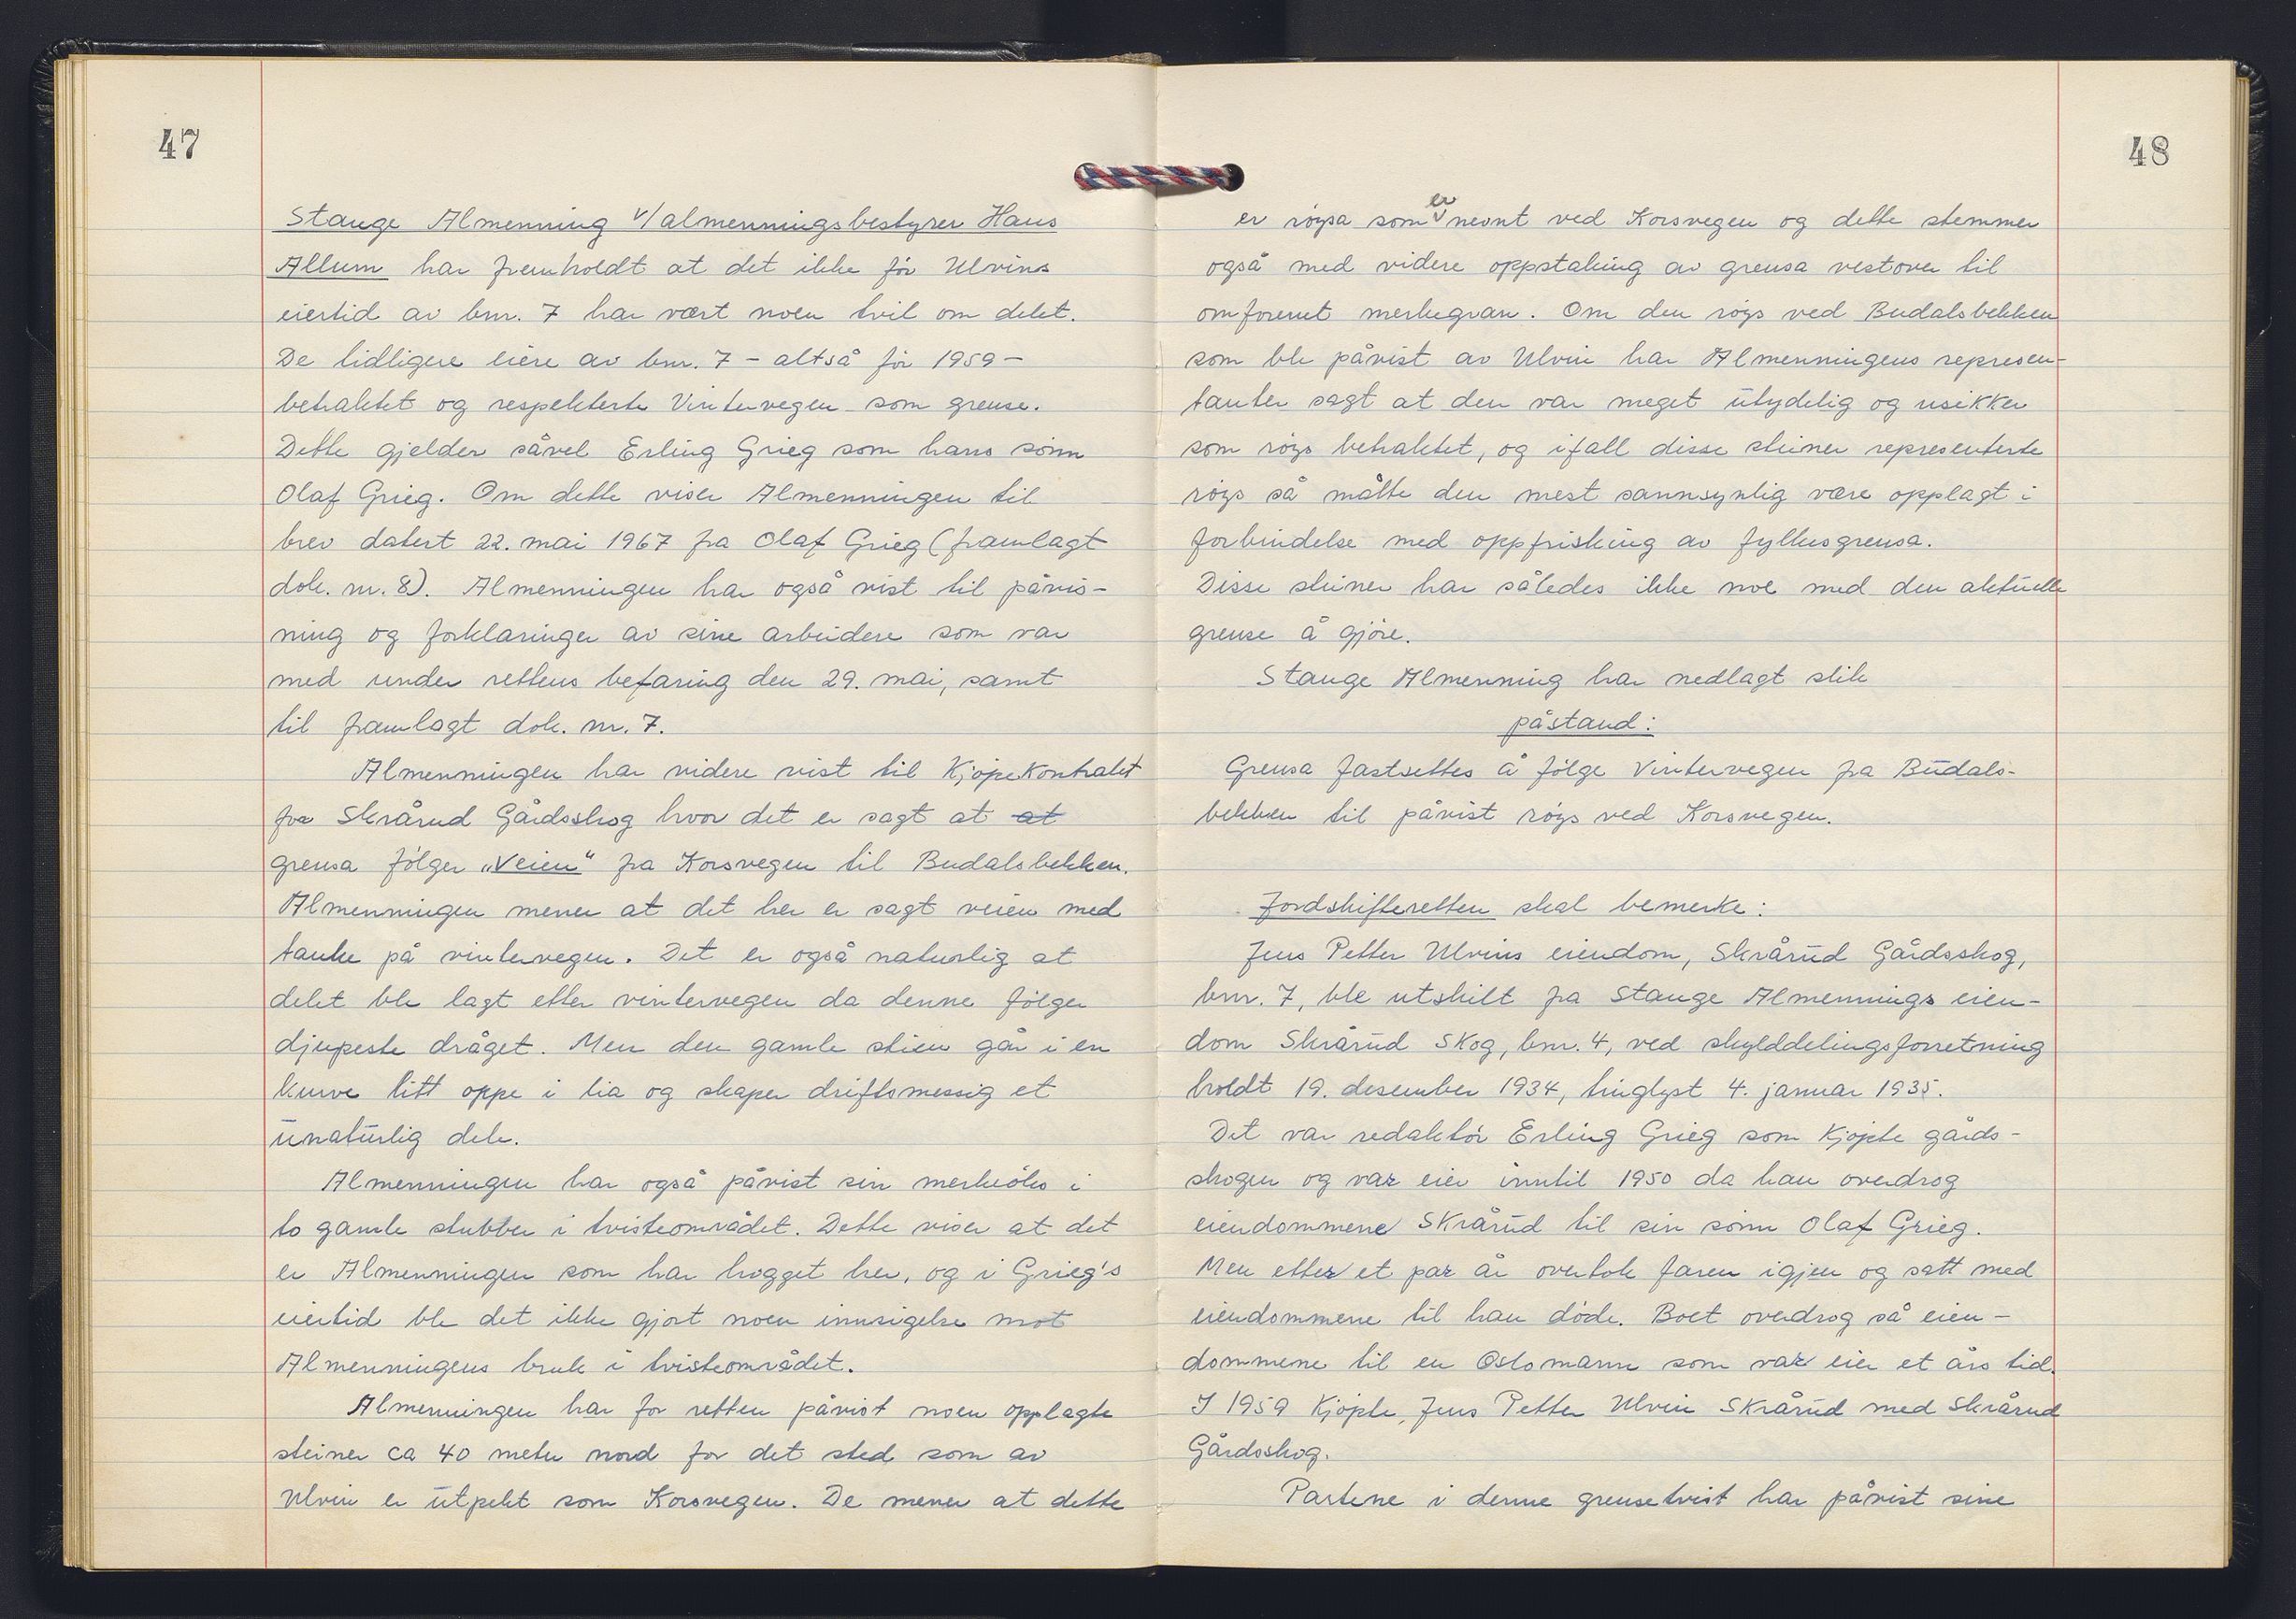 47
Stange Almenning v/almenningsbestyrer Hans
Allum har fremholdt at det ikke før Ulvins
eiertid av bnr. 7 har vært noen tvil om delet.
De tidligere eiere av bnr. 7 - altså før 1959 -
betraktet og respekterte Vintervegen som grense.
Dette gjelder såvel Erling Grieg som hans sønn
Olaf Grieg. Om dette viser Almenningen til
brev datert 22. mai 1967 fra Olaf Grieg (framlagt
dok. nr. 8). Almenningen har også vist til påvis-
ning og forklaringer av sine arbeidere som var
med under rettens befaring den 29. mai, samt
til framlagt dok. nr. 7.
Almenningen har videre vist til Kjøpekontrakt
for Skrårud Gårdsskog hvor det er sagt at at
grensa følger „veien" fra Korsvegen til Budalsbekken.
Almenningen mener at det her er sagt veien med
tanke på vintervegen. Det er også naturlig at
delet ble lagt etter vintervegen da denne følger
djupeste dråget. Men den gamle stien går i en
kurve litt oppe i lia og skaper driftsmessig et
unaturlig dele.
Almenningen har også påvist sin merkeøks i
to gamle stubber i tvisteområdet. Dette viser at det
er Almenningen som har hogget her, og i Grieg's
eiertid ble det ikke gjort noen innsigelse mot
Almenningens bruk i tvisteområdet.
Almenningen har for retten påvist noen opplagte
steiner ca 40 meter nord for det sted som av
Ulvin er utpekt som Korsvegen. De mener at dette
48
er røysa som er nevnt ved Korsvegen og dette stemmer
også med videre oppstaking av grensa vestover til
omforenet merkegran. Om den røys ved Budalsbekken
som ble påvist av Ulvin har Almenningens represen-
tanter sagt at den var meget utydelig og usikker
som røys betraktet, og ifall disse steiner representerte
røys så måtte den mest sannsynlig være opplagt i
forbindelse med oppfrisking av fylkesgrensa.
Disse steiner har således ikke noe med den aktuelle
grense å gjøre.
Stange Almenning har nedlagt slik
påstand:
Grensa fastsettes å følge Vintervegen fra Budals-
bekken til påvist røys ved Korsvegen.
Jordskifteretten skal bemerke:
Jens Petter Ulvins eiendom, Skrårud Gårdsskog,
bnr. 7, ble utskilt fra Stange Almennings eien-
dom Skrårud Skog, bnr. 4, ved skylddelingsforretning
holdt 19. desember 1934, tinglyst 4. januar 1935.
Det var redaktør Erling Grieg som kjøpte gårds-
skogen og var eier inntil 1950 da han overdrog
eiendommene Skrårud til sin sønn Olaf Grieg.
Men etter et par år overtok faren igjen og satt med
eiendommene til han døde. Boet overdrog så eien-
dommene til en Oslomann som var eier et års tid.
I 1959 kjøpte Jens Petter Ulvin Skrårud med Skrårud
Gårdsskog.
Partene i denne grensetvist har påvist sine